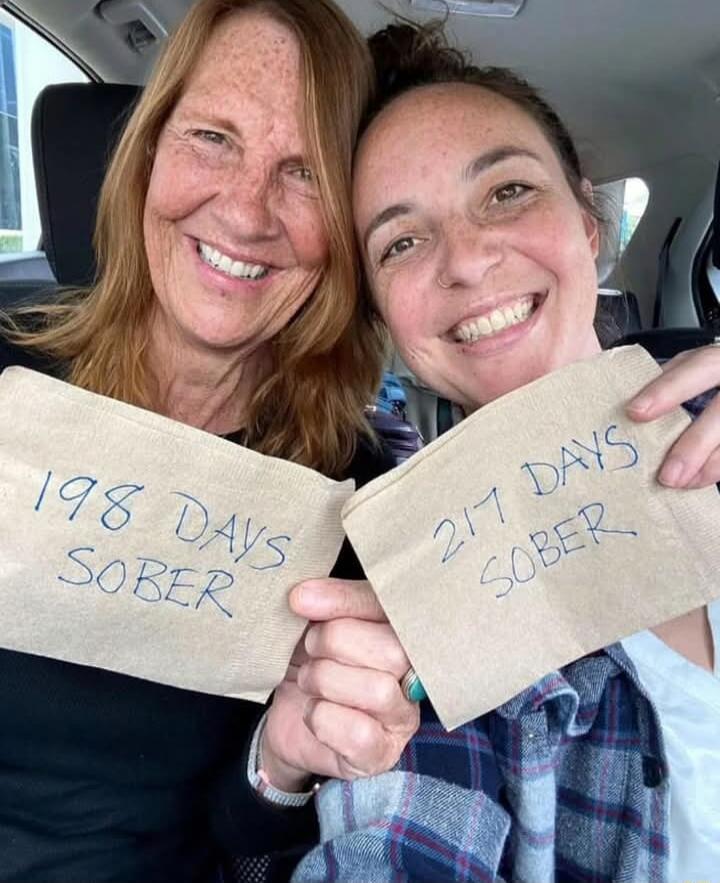 198 DAYS
SOBER
217 DAYS
SOBER